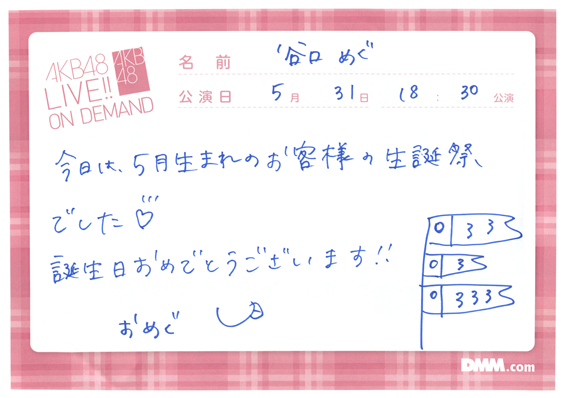 AKB48
LIVE!!
ON DEMAND
AKB
48
名前 谷口 めぐ
公演日 5月 31日 18:30 公演
今日は、5月生まれのお客様の生誕祭、
でした♡
誕生日おめでとうございます!!
おめぐ
DMM.com